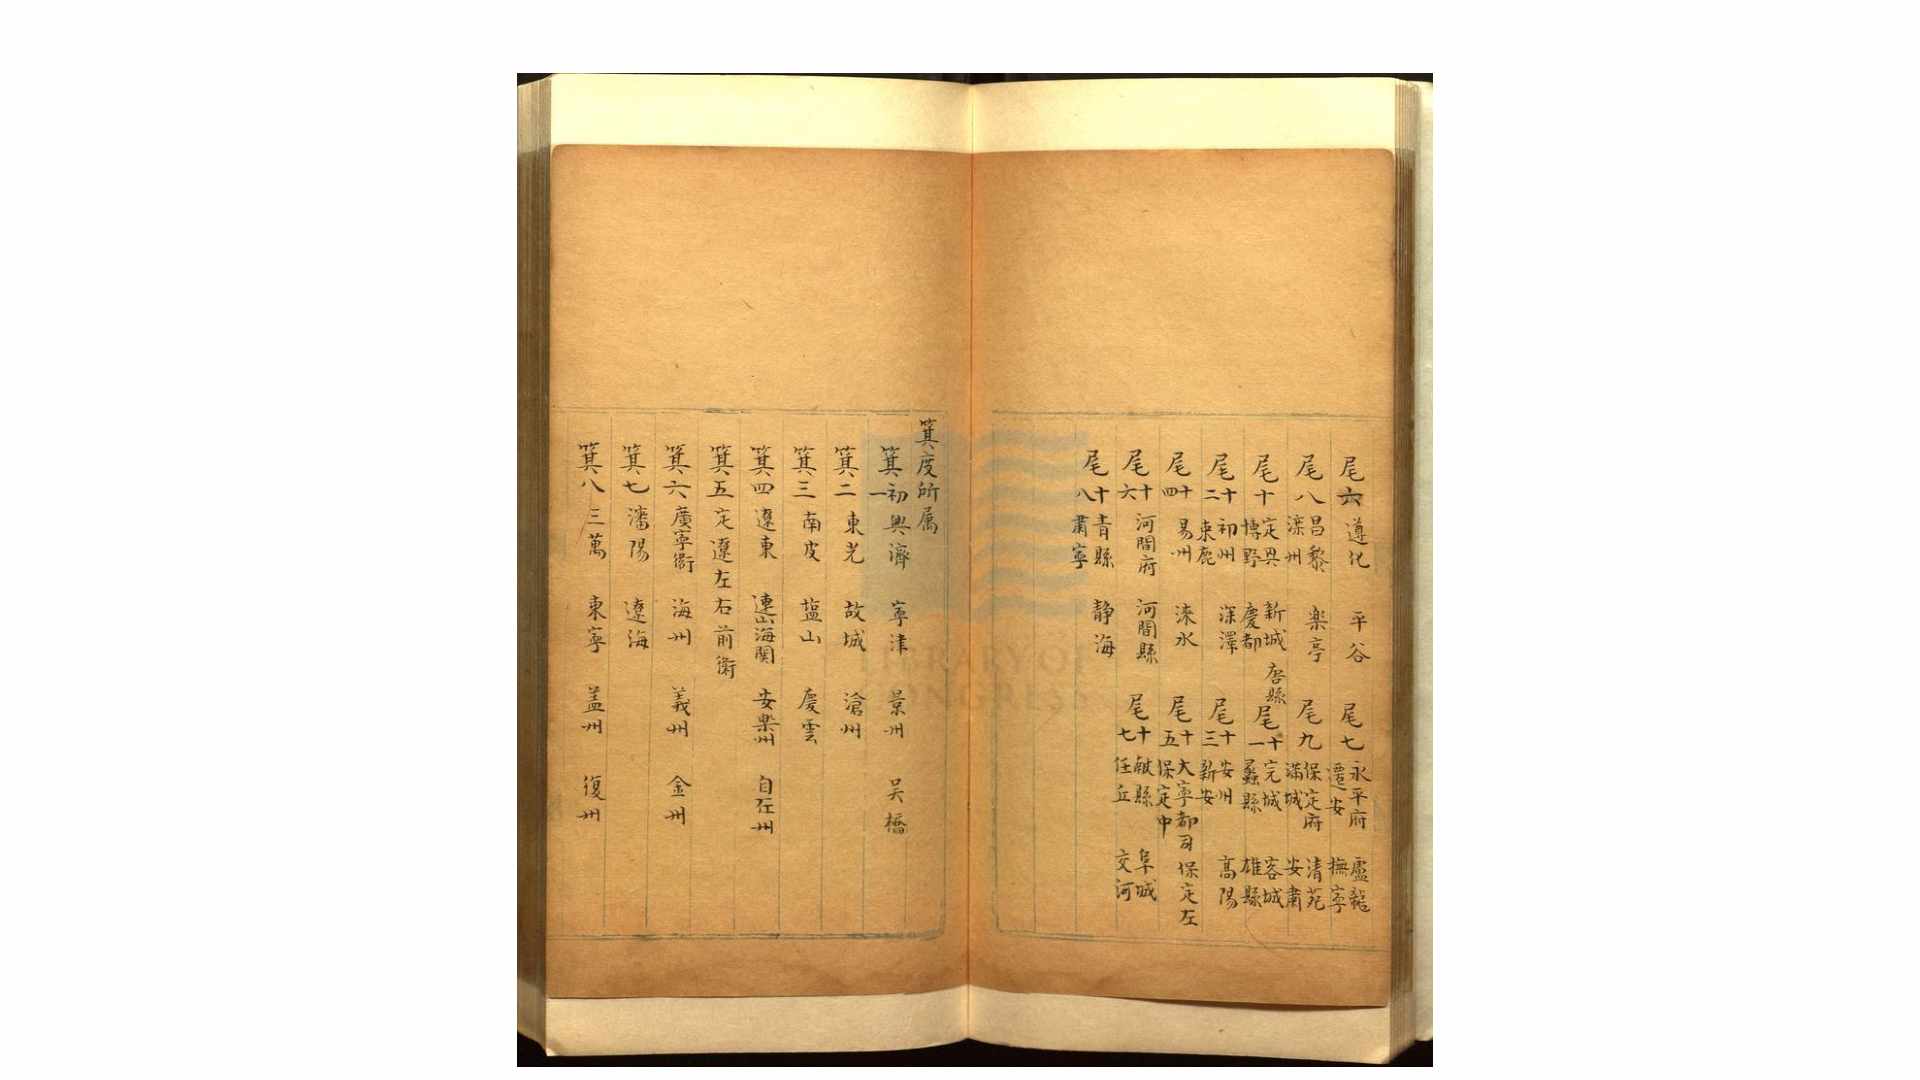 尾六 遵化 平谷 尾七 永平府 盧龍 遷安 撫寧
尾八 昌黎 滦州 楽亭 尾九 保定府 清苑 滿城 安肅
尾十 定興 博野 新城 慶都 唐縣 尾十一 完城 容城 蠡縣 雄縣
尾十二 初州 束鹿 深澤 尾十三 安州 新安 高陽
尾十四 易州 淶水 尾十五 大寧都司 保定左 保定中
尾十六 河間府 河間縣 尾十七 献縣 阜城 任丘 交河
尾十八 青縣 肅寧 静海
箕度所属
箕初一 興濟 寧津 景州 吴橋
箕二 東光 故城 滄州
箕三 南皮 塩山 慶雲
箕四 遼東 連山海関 安楽州 自在州
箕五 定遼左右前衛
箕六 廣寧衛 海州 義州 金州
箕七 瀋陽 遼海
箕八 三萬 東寧 盖州 復州
LIBRARY OF CONGRESS